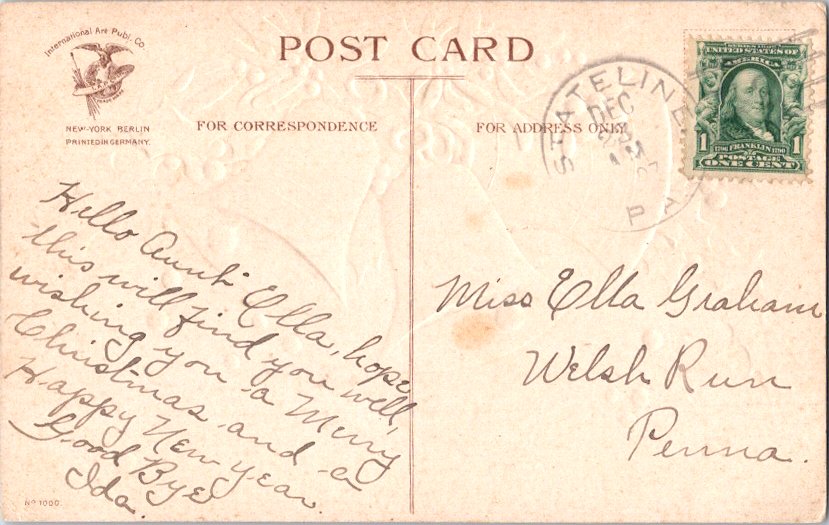 International Art Publ. Co.
NEW-YORK BERLIN
PRINTED IN GERMANY.
POST CARD
FOR CORRESPONDENCE
FOR ADDRESS ONLY
STATELINE
DEC
PA
SERIES 1902
UNITED STATES OF
AMERICA
1706 FRANKLIN 1790
1 1
POSTAGE
ONE CENT
Hello Aunt Ella, hope
this will find you well,
wishing you a Merry
Christmas and a
Happy New Year.
Good Bye
Ida.
Miss Ella Graham
Welsh Run
Penna.
No 1000.